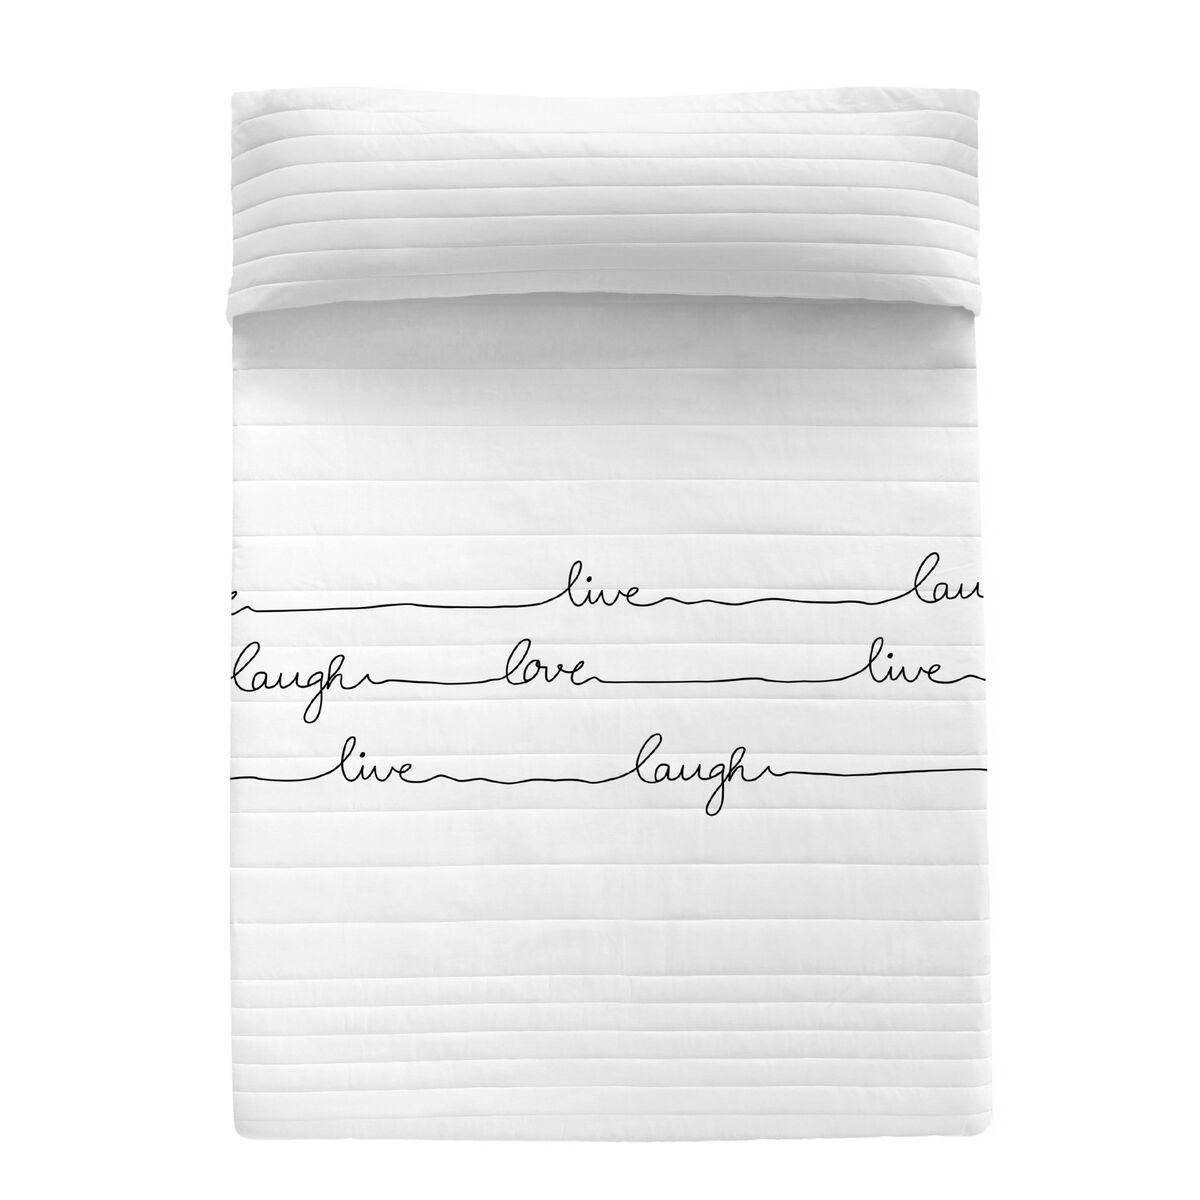 live lau
laugh love live
live laugh